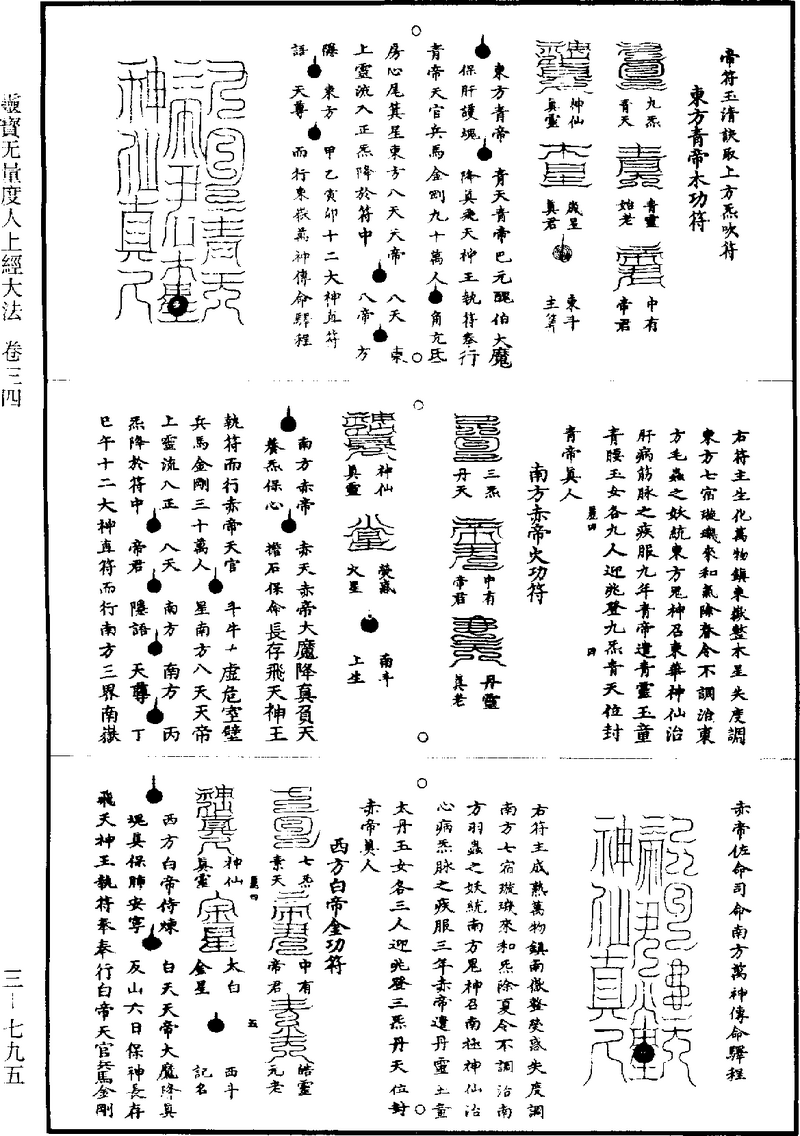 靈寶无量度人上經大法　卷三四
三—七九五
帝符玉清訣取上方炁吹符
東方青帝木功符
九炁青天
青靈始老
中有帝君
神仙真靈
木星
歲星真君
東斗主筭
東方青帝　青天青帝巴元醜伯大魔
保肝護魂　降真飛天神王執符奉行
青帝天官兵馬金剛九十萬人　角亢氐
房心尾箕星東方八天天帝　八天　東
上靈流入正炁降於符中　八帝　方
隱　東方　甲乙寅卯十二大神直符
語　天尊　而行東嶽萬神傳命驛程
右符主生化萬物鎮東嶽整木星失度調
東方七宿璇璣來和氣除春令不調治東
方毛蟲之妖統東方鬼神召東華神仙治
肝病筋脉之疾服九年青帝遣青靈玉童
青腰玉女各九人迎兆登九炁青天位封
青帝真人
南方赤帝火功符
三炁丹天
中有帝君
丹靈真老
神仙真靈
熒惑火星
南斗上生
南方赤帝　赤天赤帝大魔降真負天
養炁保心　擔石保命長存飛天神王
執符而行赤帝天官　斗牛女虛危室壁
兵馬金剛三十萬人　星南方八天天帝
上靈流八正　八天　南方　南方　丙
炁降於符中　帝君　隱語　天尊　丁
巳午十二大神直符而行南方三界南嶽
赤帝佐命司命南方萬神傳命驛程
右符主成熟萬物鎮南嶽整熒惑失度調
南方七宿璇璣來和炁除夏令不調治南
方羽蟲之妖統南方鬼神召南極神仙治
心病炁脉之疾服三年赤帝遣丹靈玉童
太丹玉女各三人迎兆登三炁丹天位封
赤帝真人
西方白帝金功符
七炁素天
中有帝君
皓靈元老
神仙真靈
金星
太白金星
西斗記名
西方白帝侍煉　白天天帝大魔降真
魄真保肺安寧　反山六日保神長存
飛天神王執符奉奉行白帝天官兵馬金剛